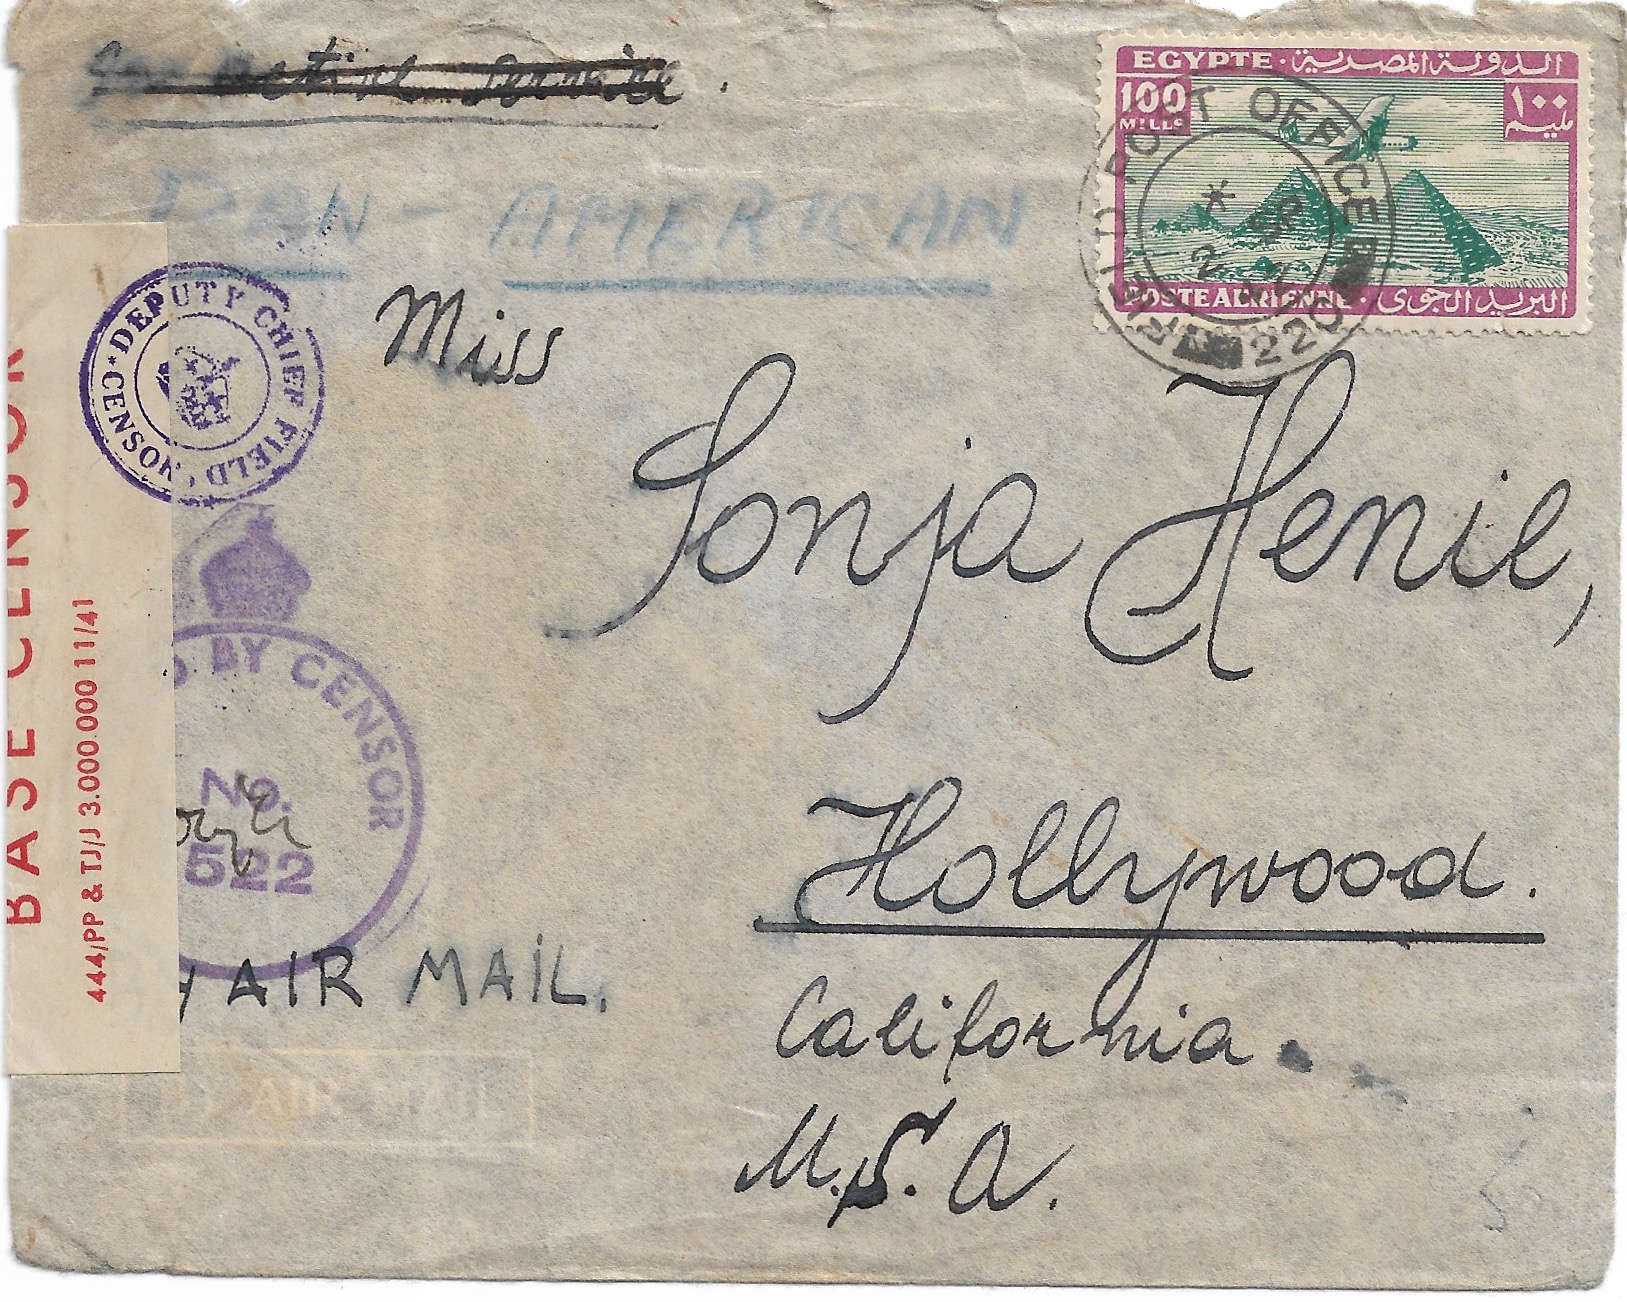 On Active Service.
PAN - AMERICAN
EGYPTE · الدولة المصرية
100 MILLS ١٠٠ مليم
POSTE AÉRIENNE · البريد الجوى
FIELD POST OFFICE
* SE
2
220
DEPUTY CHIEF FIELD CENSOR
Miss
Sonja Henie,
Hollywood.
California.
U.S.A.
BASE CENSOR
444/PP & TJ/J 3.000.000 11/41
D BY CENSOR
No.
522
y AIR MAIL.
BY AIR MAIL